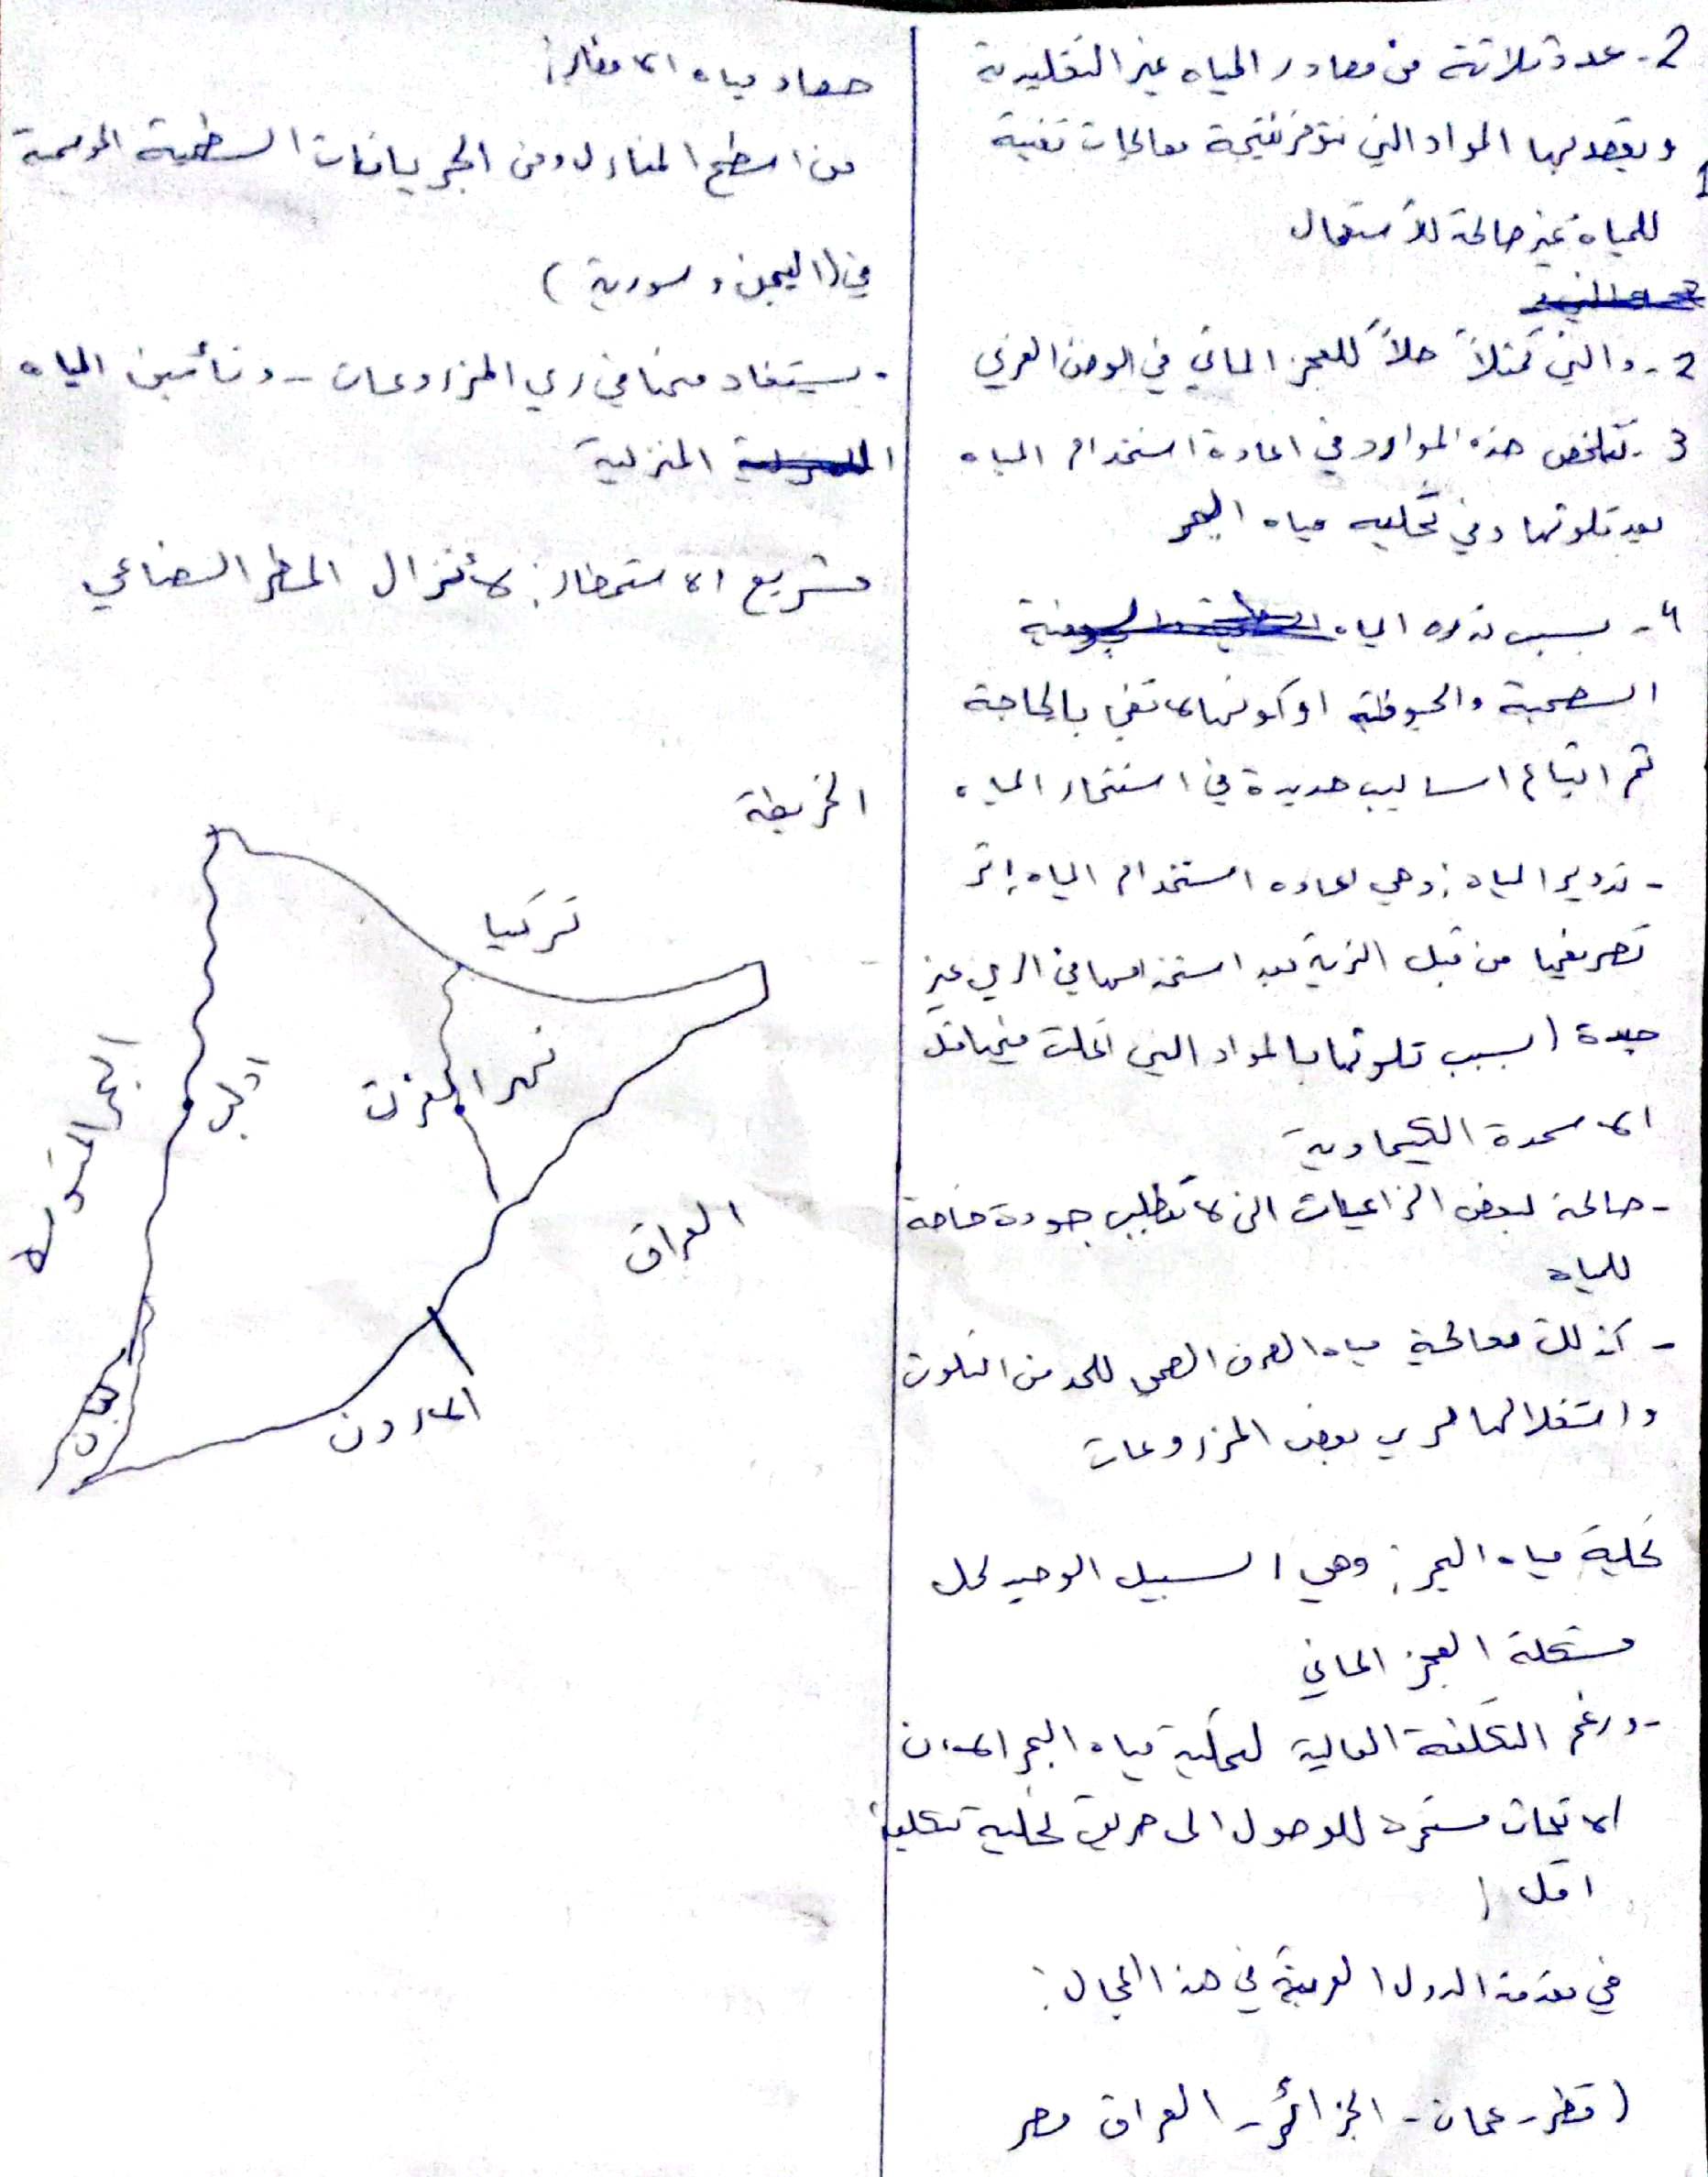 2- عدة ثلاثة من مصادر المياه غير التقليدية
ويقصد بها المواد التي تتوفر نتيجة معالجات تقنية
للمياة غير صالحة للأستعمال
2- والتي تمثلاً حلاً للعجز المائي في الوطن العربي
3- تتلخص هذه الموارد في اعادة استخدام المياه
بعد تلوثها وفي تحليه مياه البحر
4- بسبب ندره المياه
السطحية والجوفية او كونها لا تفي بالحاجة
تم اتباع اساليب جديدة في استثمار المياه
- تدوير المياه : وهي اعاده استخدام المياه إثر
تصريفها من قبل التربة بعد استخدامها في الري غير
جيدة (بسبب تلوثها بالمواد التي انحلت فيها مثل
الاسمدة الكيماوية
- صالحة لبعض الزراعيات التي لا تتطلب جودة خاصة
للمياه
- كذلك معالجة مياه الصرف الصحي للحد من التلوث
واستغلالها لري بعض المزروعات
تحلية مياه البحر : وهي السبيل الوحيد لحل
مشكلة العجز المائي
- ورغم التكلفة العالية لتحلية مياه البحر الا ان
الابحاث مستمرة للوصول الى طريق تحلية تكليف
اقل (
في مقدمة الدول العربية في هذا المجال :
( قطر - عمان - الجزائر - العراق مصر
حصاد مياه الامطار :
من اسطح المنازل ومن الجريانات السطحية الموسمية
في (اليمن وسورية )
- يستفاد منها في ري المزروعات - وتأمين المياه
المنزلية
مشريع الاستمطار : لأنزال المطر الصناعي
الخريطة
تركيا
نهر الفرت
ادلب
البحر المتوسط
العراق
الاردن
لبنان